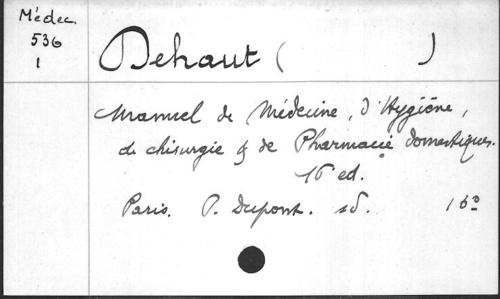 Médec.
536
1
Dehaut ( )
Manuel de Médecine, d'Hygiène,
de chirurgie & de Pharmacie domestiques.
16 ed.
Paris. P. Dupont. sd. 16°